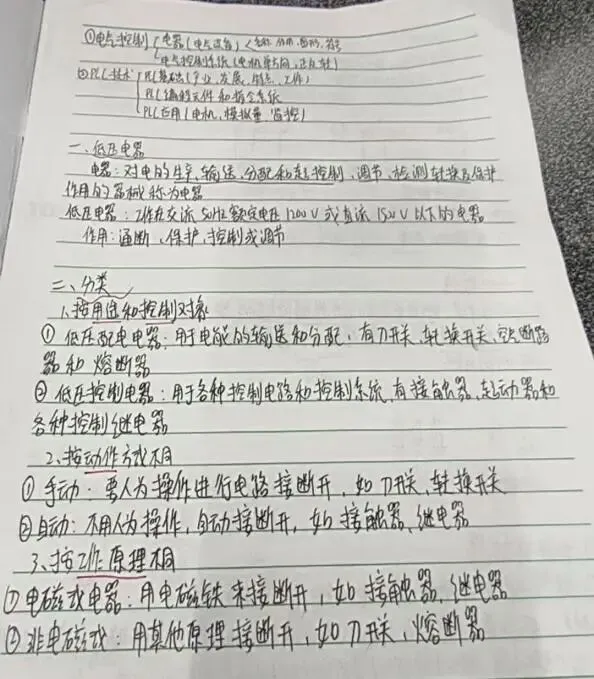 ①电气控制 电器(电气设备) 名称、作用、图形、符号
电气控制系统(电机单方向、正反转)
②PLC技术 PLC基础(产业、发展、特点、工作)
PLC编程元件和指令系统
PLC应用(电机、模拟量、监控)
一、低压电器
电器:对电的生产、输送、分配和起控制、调节、检测转换及保护
作用的器械称为电器
低压电器:工作在交流50Hz额定电压1200V或直流1500V以下的电器
作用:通断、保护、控制或调节
二、分类
1、按用途和控制对象
①低压配电电器:用于电能的输送和分配,有刀开关、转换开关、空气断路
器和熔断器
②低压控制电器:用于各种控制电路和控制系统,有接触器、起动器和
各种控制继电器
2、按动作方式不同
①手动:要人为操作进行电路接断开,如刀开关、转换开关
②自动:不用人为操作,自动接断开,如接触器、继电器
3、按工作原理不同
①电磁式电器:用电磁铁来接断开,如接触器、继电器
②非电磁式:用其他原理接断开,如刀开关,熔断器